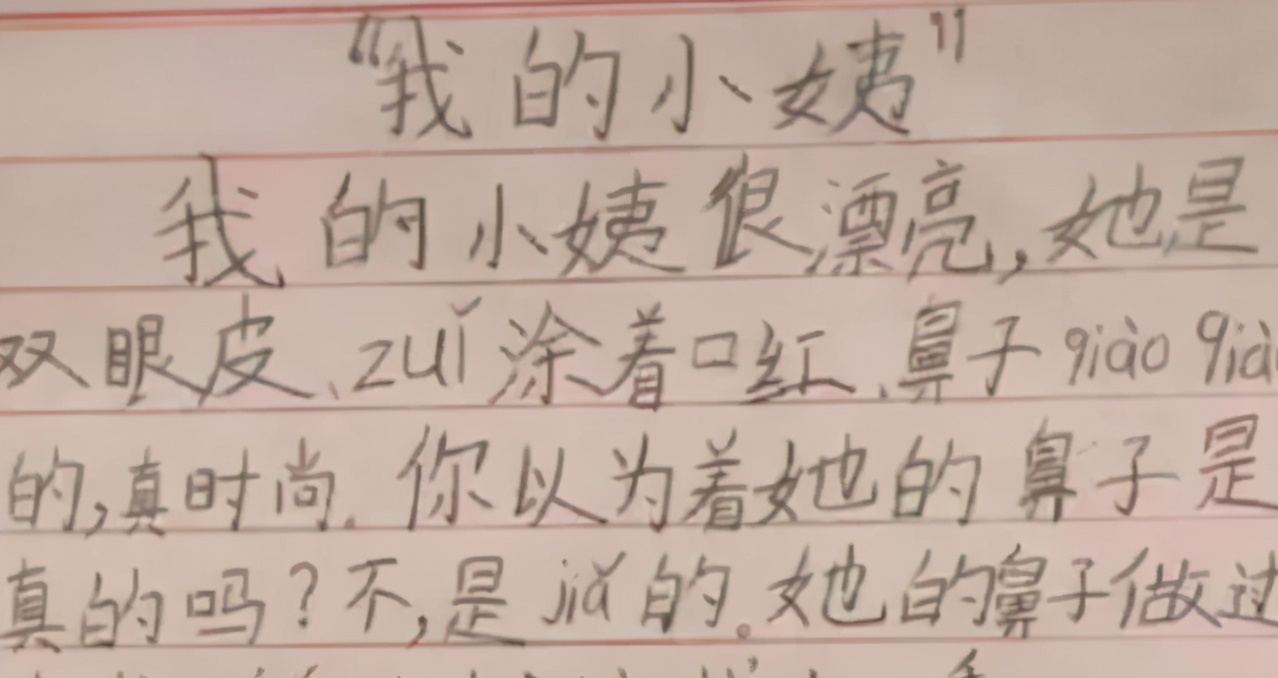 “我的小姨”
我的小姨很漂亮,她是
双眼皮、zuǐ涂着口红、鼻子qiào qià
的,真时尚.你以为着她的鼻子是
真的吗?不,是jiǎ的。她的鼻子做过